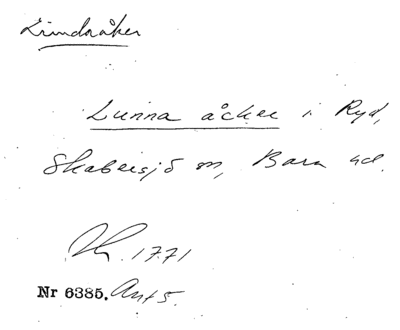 Lindsåker
Lunna åcker i Ryd,
Skabersjö sn, Bara hd.
1771
Nr 6385. Ant 5.